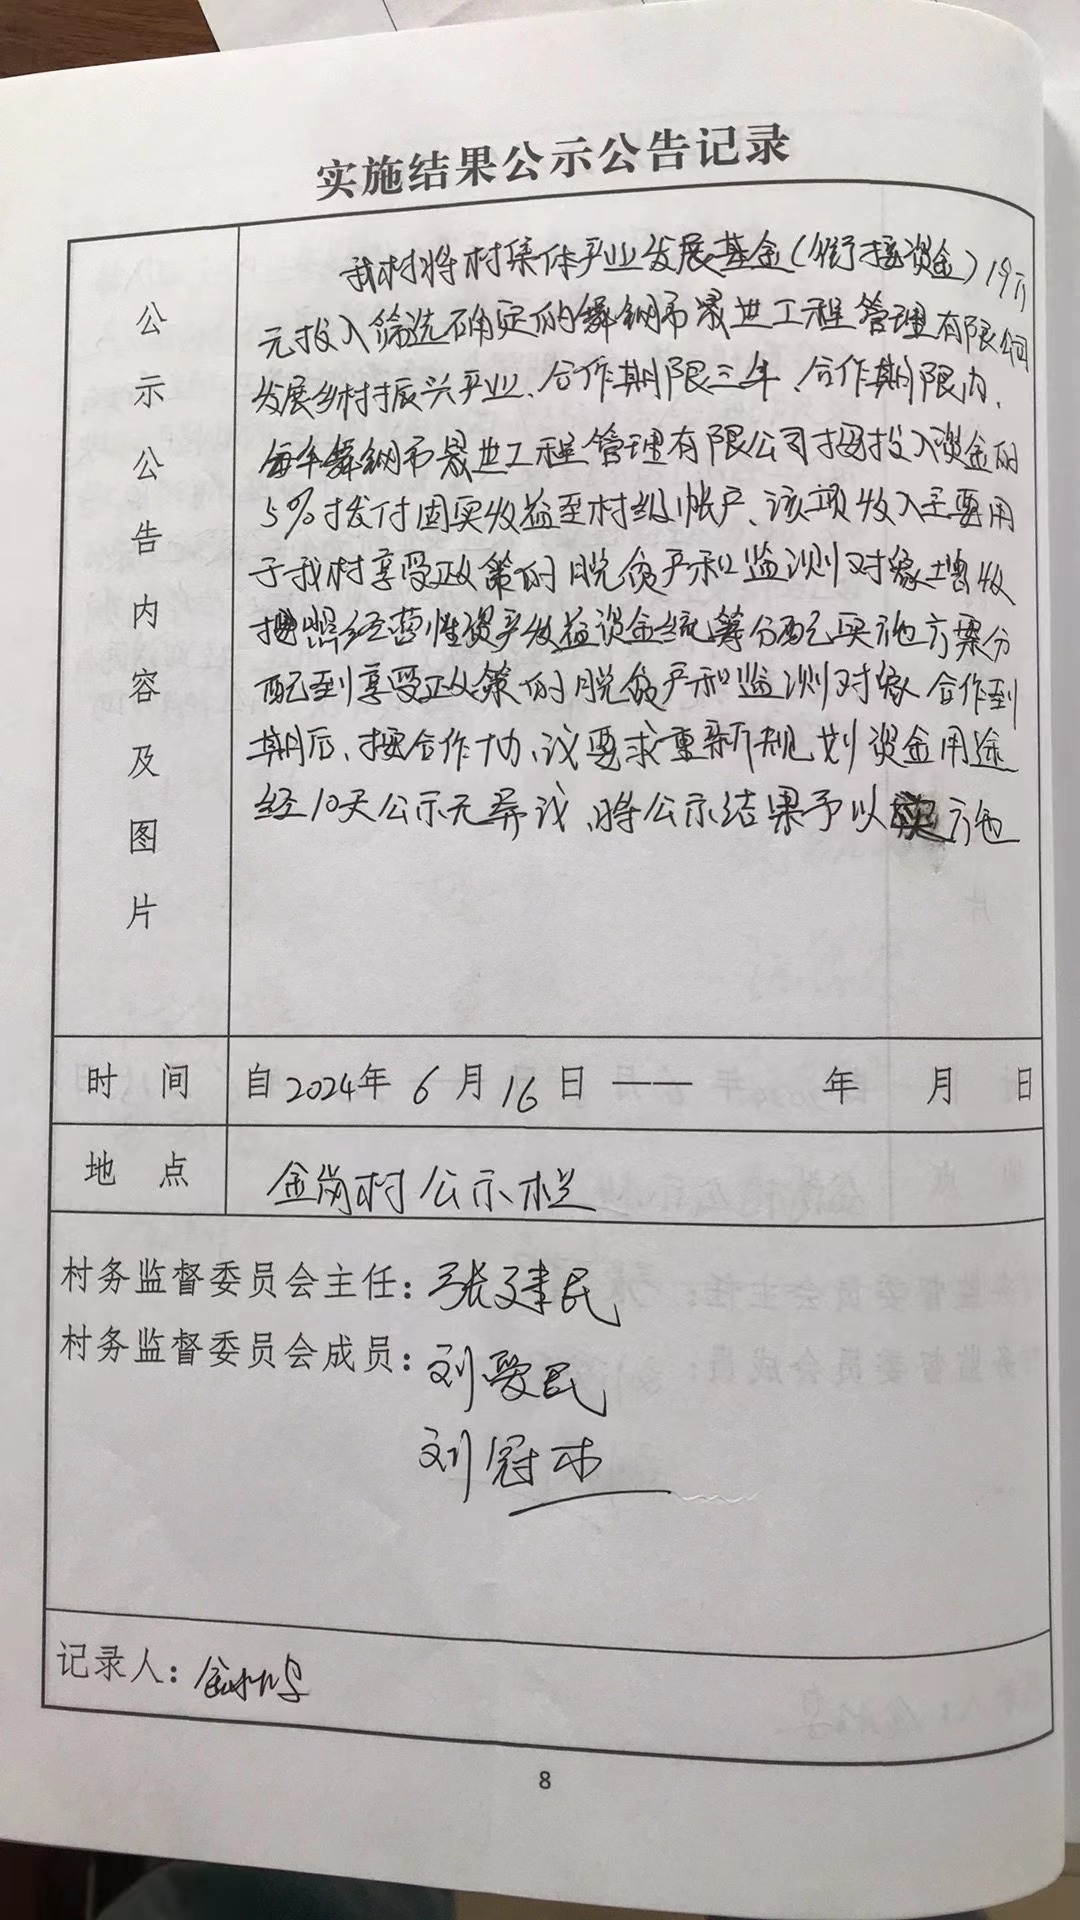 实施结果公示公告记录
公示公告内容及图片
我村将村集体产业发展基金(衔接资金)19万
元投入筛选确定的舞钢市晟世工程管理有限公司
发展乡村振兴产业、合作期限三年、合作期限内、
每年舞钢市晟世工程管理有限公司按投入资金的
5%拨付固定收益至村级帐户、该项收入主要用
于我村享受政策的脱贫户和监测对象增收
按照经营性资产收益资金统筹分配实施方案分
配到享受政策的脱贫户和监测对象 合作到
期后、按合作协议要求重新规划资金用途
经10天公示无异议、将公示结果予以实施
时 间 自2024年 6 月 16 日 —— 年 月 日
地 点 金岗村公示栏
村务监督委员会主任：张建民
村务监督委员会成员：刘爱民
刘冠木
记录人：
8